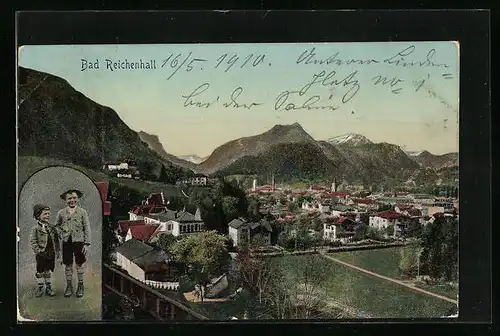 Bad Reichenhall 16/5 1910. Unterer Linden
Platz no 1
bei der Saline